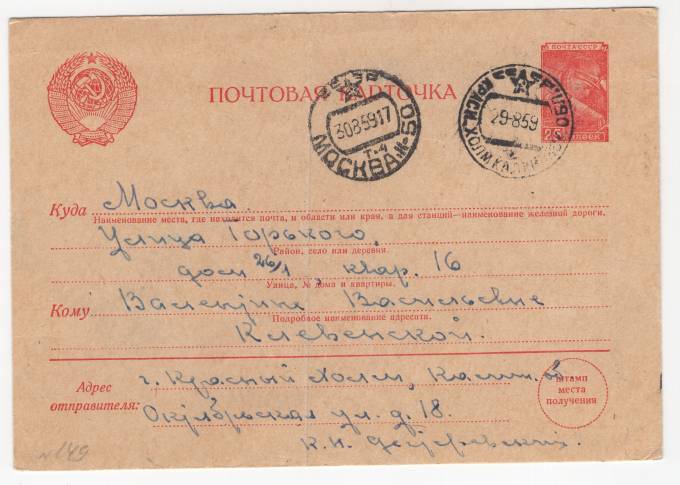 ПОЧТА СССР
ПОЧТОВАЯ КАРТОЧКА
30859 17
МОСКВА И-50
Т-4
29-8 59
КРАСН. ХОЛМ КАЛИНИН. ОБЛ.
25 КОПЕЕК
Куда Москва.
Наименование места, где находится почта, и области или края, а для станций—наименование железной дороги.
Улица Горького,
Район, село или деревня.
дом 26/1, квар. 16
Улица, № дома и квартиры.
Кому Валентине Васильевне
Подробное наименование адресата.
Клевенской.
Адрес отправителя:
г. Красный Холм, Калин.
Октябрьская ул. д. 18.
К. И.
штамп места получения
№149